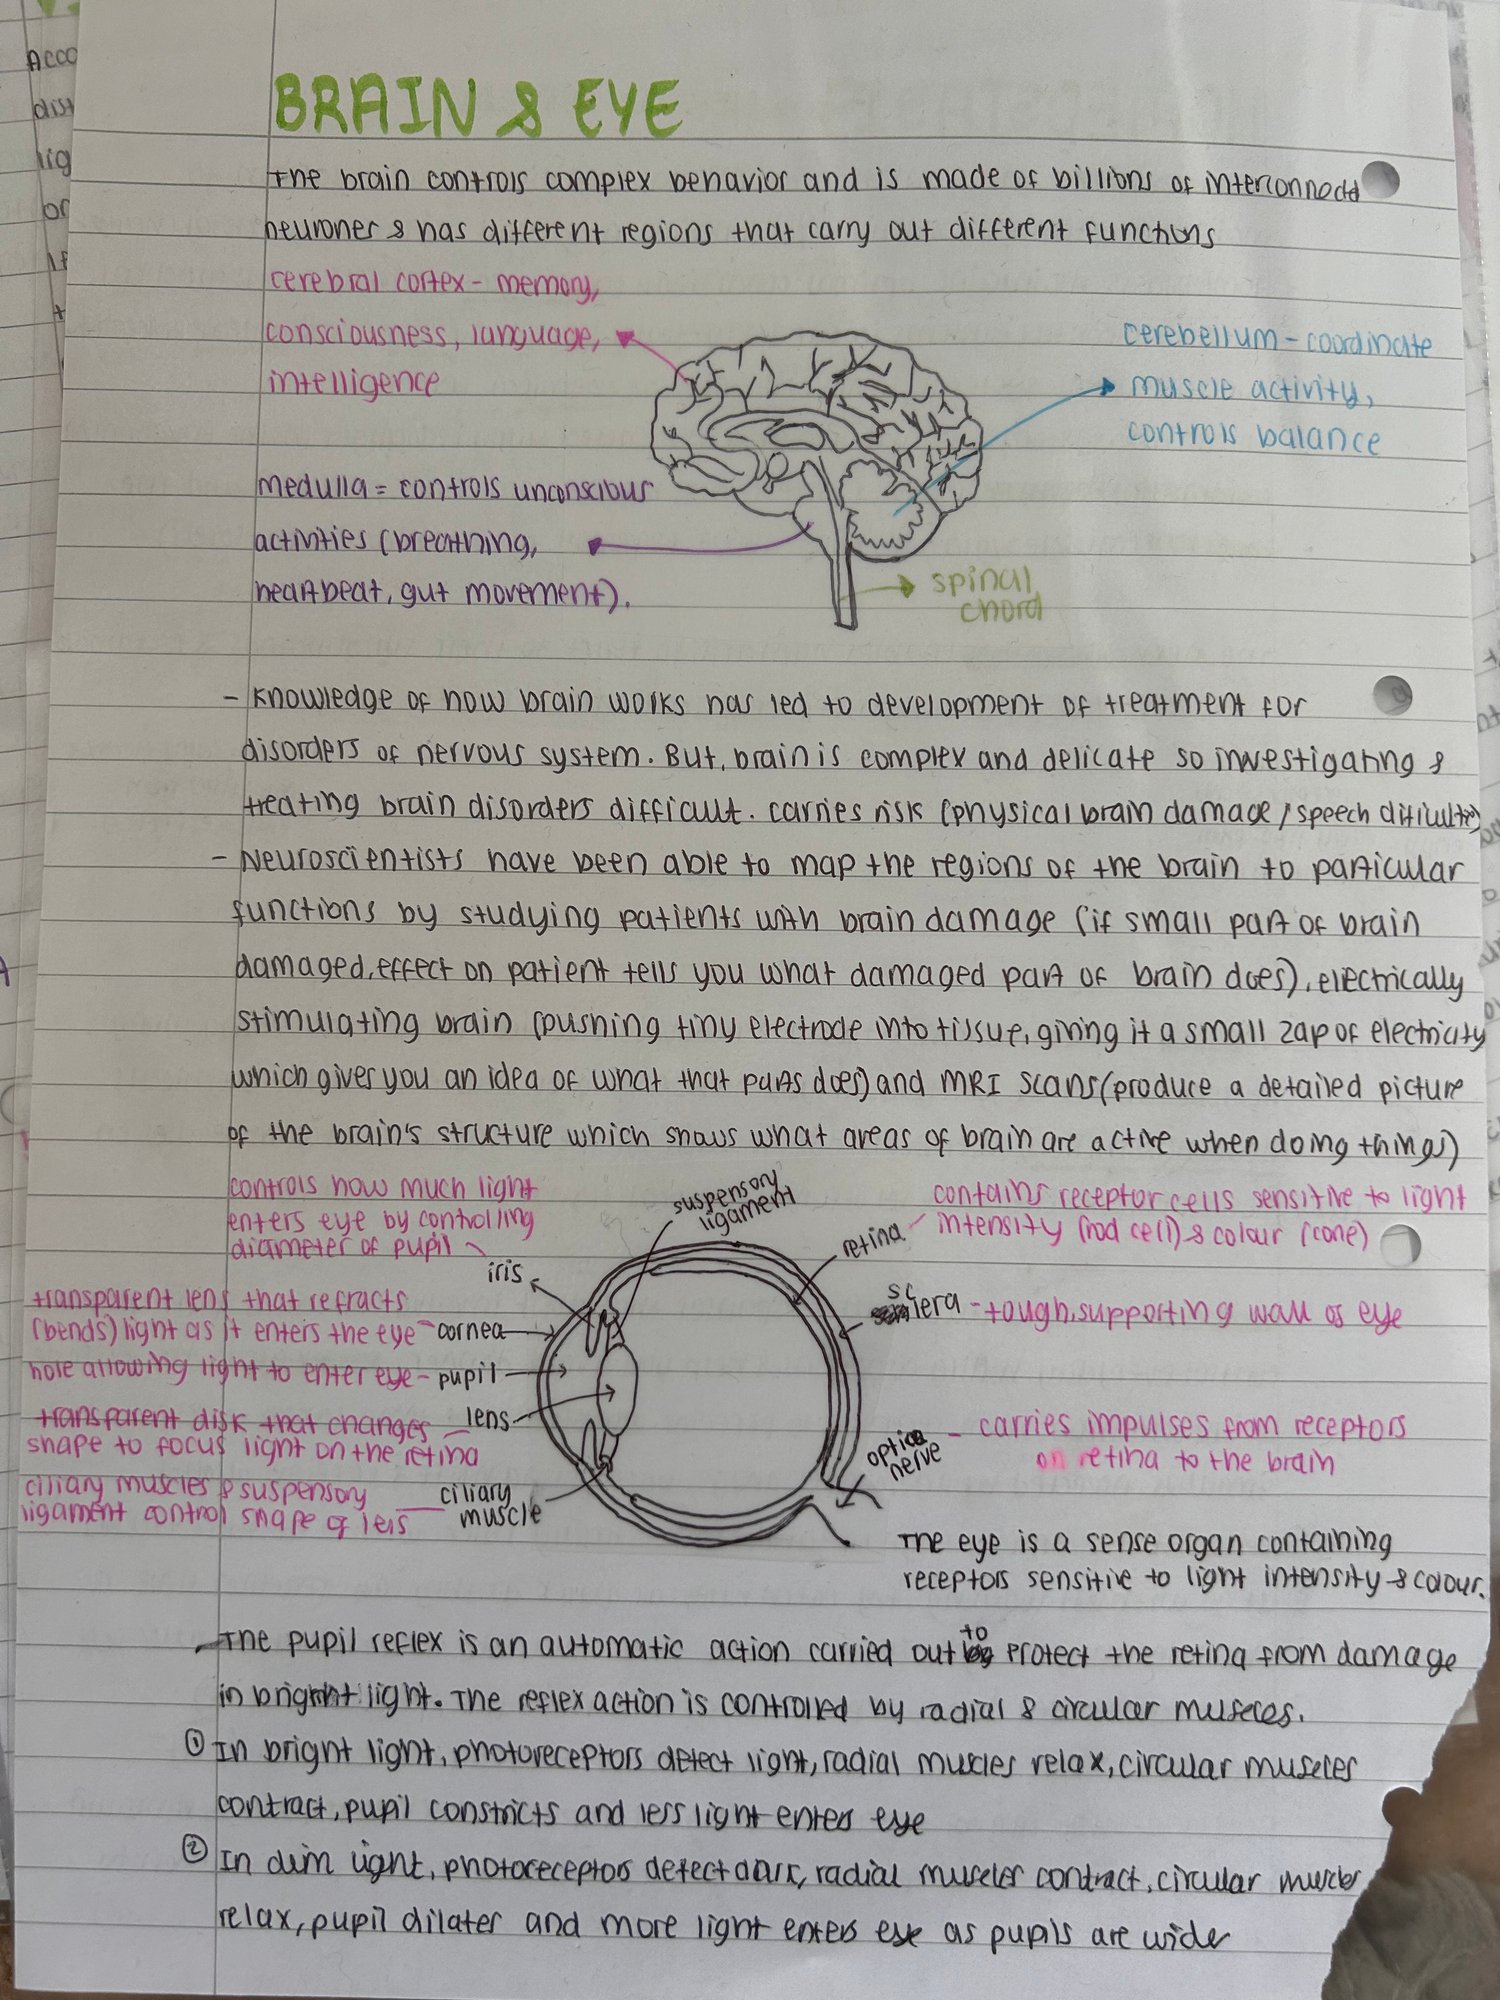 BRAIN & EYE
The brain controls complex behavior and is made of billions of interconnectd
neurones & has different regions that carry out different functions
cerebral cortex - memory,
consciousness, language,
intelligence
cerebellum - coordinate
muscle activity,
controls balance
medulla = controls unconscious
activities (breathing,
heartbeat, gut movement).
spinal
chord
- Knowledge of how brain works has led to development of treatment for
disorders of nervous system. But, brain is complex and delicate so investigating &
treating brain disorders difficult. carries risk (physical brain damage / speech difficulties)
- Neuroscientists have been able to map the regions of the brain to particular
functions by studying patients with brain damage (if small part of brain
damaged, effect on patient tells you what damaged part of brain does), electrically
stimulating brain (pushing tiny electrode into tissue, giving it a small zap of electricity
which gives you an idea of what that parts does) and MRI scans (produce a detailed picture
of the brain's structure which shows what areas of brain are active when doing things)
controls how much light
enters eye by controlling
diameter of pupil
iris
suspensory
ligament
retina
contains receptor cells sensitive to light
intensity (rod cell) & colour (cone)
transparent lens that refracts
(bends) light as it enters the eye - cornea
sclera - tough, supporting wall of eye
hole allowing light to enter eye - pupil
transparent disk that changes
shape to focus light on the retina
lens
optic
nerve
- carries impulses from receptors
on retina to the brain
ciliary muscles & suspensory
ligament control shape of lens
ciliary
muscle
The eye is a sense organ containing
receptors sensitive to light intensity & colour.
- The pupil reflex is an automatic action carried out to protect the retina from damage
in bright light. The reflex action is controlled by radial & circular muscles.
① In bright light, photoreceptors detect light, radial muscles relax, circular muscles
contract, pupil constricts and less light enters eye
② In dim light, photoreceptors detect dark, radial muscles contract, circular muscles
relax, pupil dilates and more light enters eye as pupils are wider